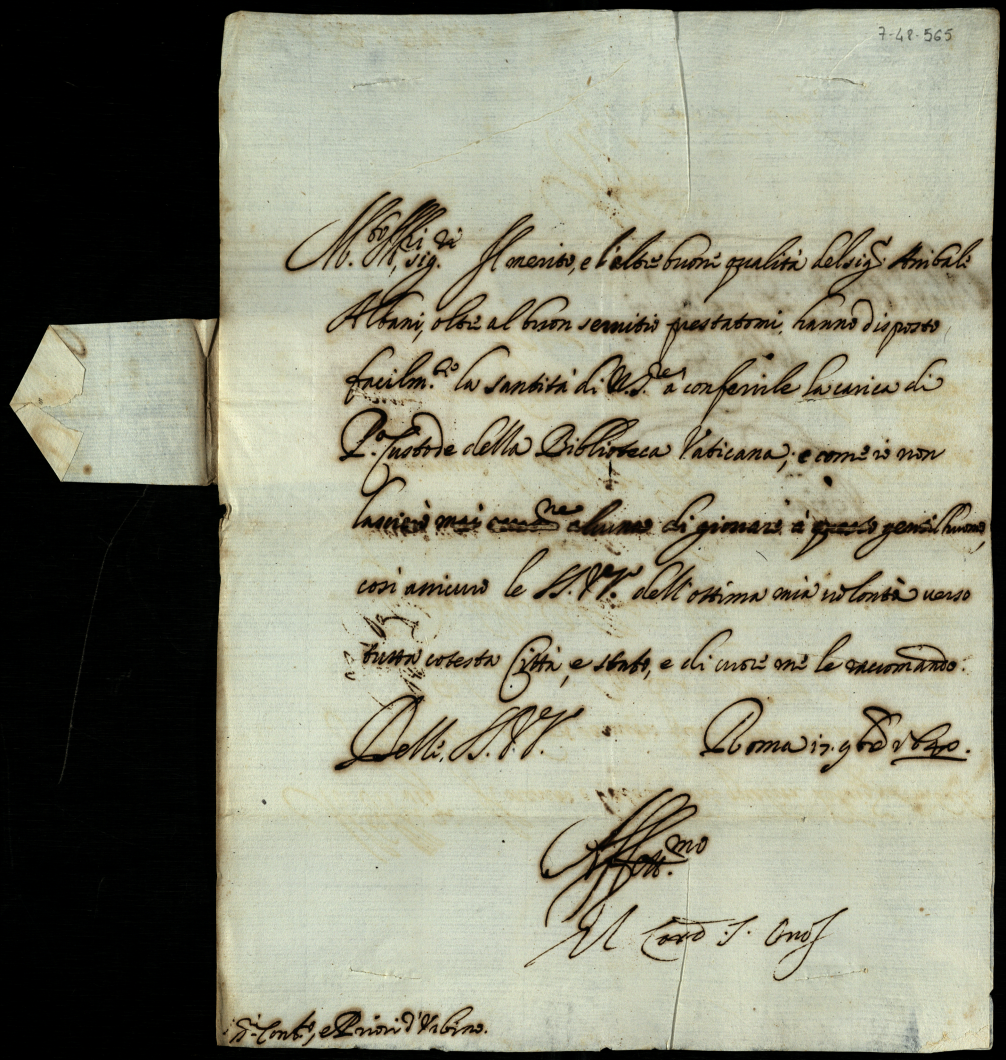 7-48-565
M.to Ill.ri sig.ri Il merito, e l'altre buone qualità del sig.r Anibale
Albani, oltre al buon servitio prestatomi, hanno disposto
facilm.te la santità di N. S.re à conferirle la carica di
P.o Custode della Biblioteca Vaticana; e come io non
lascierò mai occas.ne alcuna di giovare à questo gentilhuomo,
così assicuro le SS. VV. dell'ottima mia volontà verso
tutta cotesta Città, e stato, e di cuore me le raccomando.
Delle SS. VV. Roma 17. 9bre 1640.
Aff.mo
Il Card. S. Onof.
Conf.e, e Priori d'Urbino.